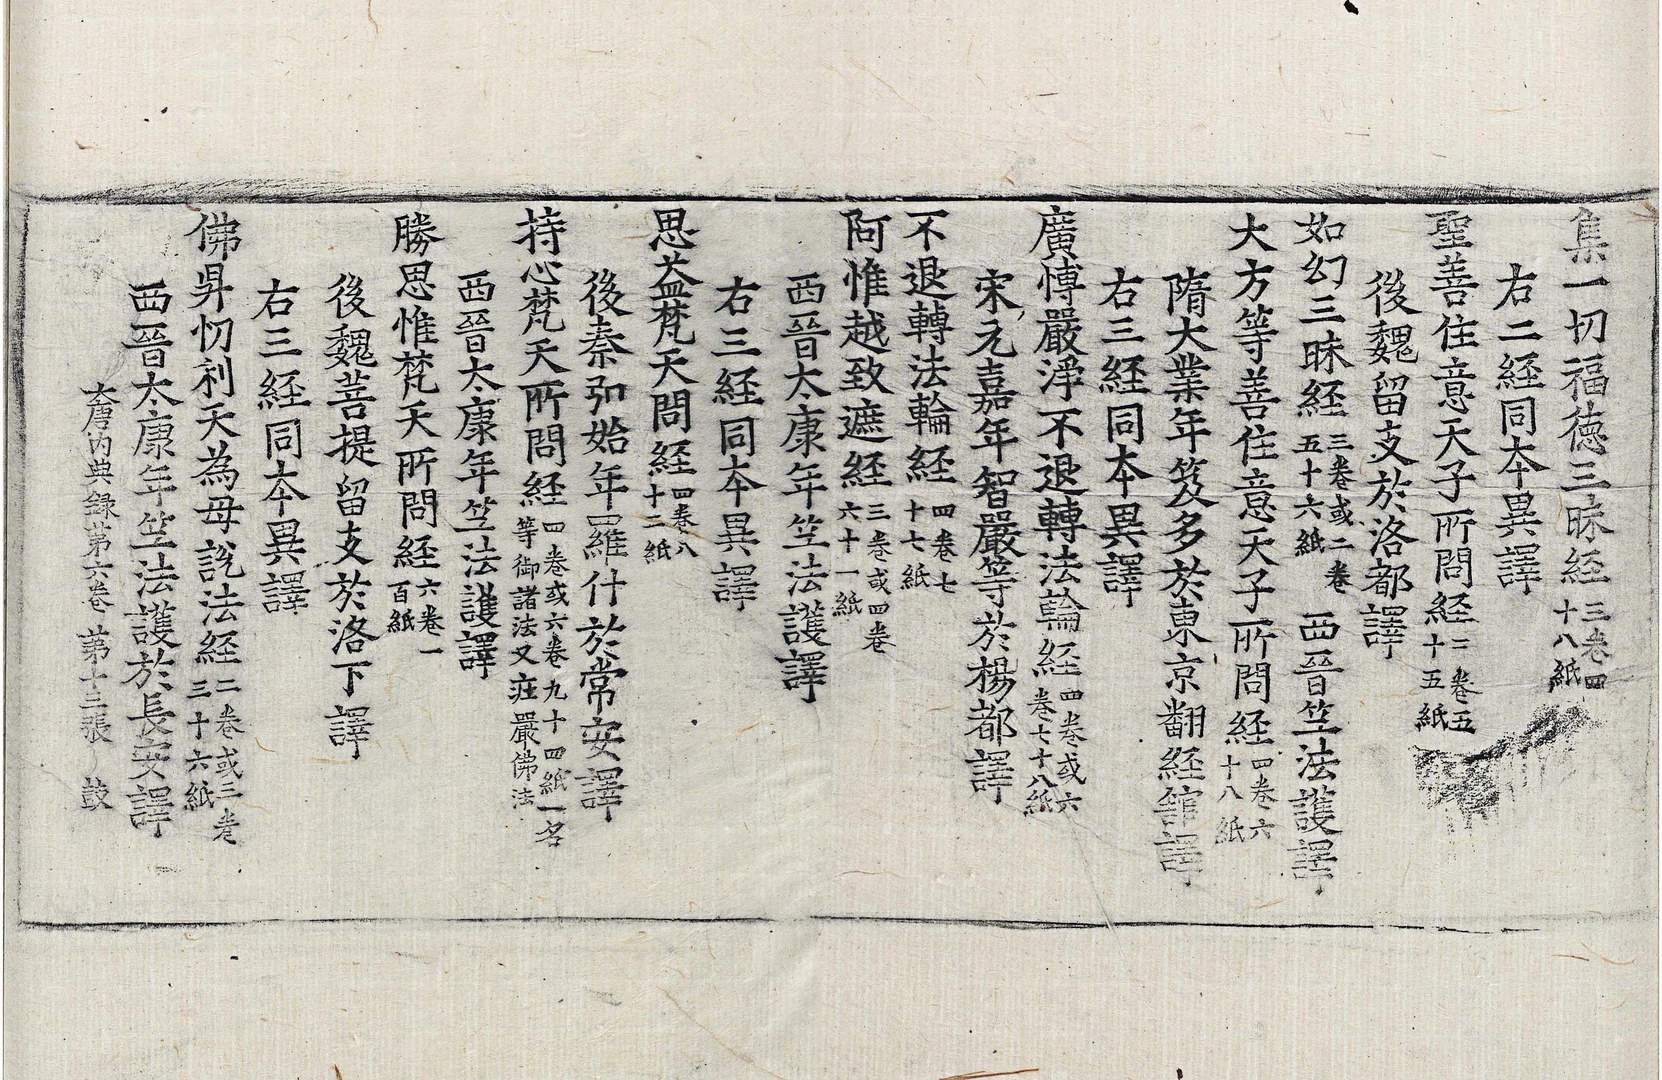 集一切福德三昧経三卷四十八紙
右二経同本異譯
聖善住意天子所問経二卷五十五紙
後魏留支於洛都譯
如幻三昧経三卷或二卷五十六紙 西晉竺法護譯
大方等善住意天子所問経四卷六十八紙
隋大業年笈多於東京翻経舘譯
右三経同本異譯
廣愽嚴淨不退轉法輪経四卷或六卷七十八紙
宋元嘉年智嚴等於楊都譯
不退轉法輪経四卷七十七紙
阿惟越致遮経三卷或四卷六十一紙
西晉太康年竺法護譯
右三経同本異譯
思益梵天問経四卷八十二紙
後秦弘始年羅什於常安譯
持心梵天所問経四卷或六卷九十四紙一名等御諸法又莊嚴佛法
西晉太康年竺法護譯
勝思惟梵天所問経六卷一百紙
後魏菩提留支於洛下譯
右三経同本異譯
佛昇忉利天為母説法経二卷或三卷三十六紙
西晉太康年竺法護於長安譯
大唐内典録苐六卷 苐十三張 鼓